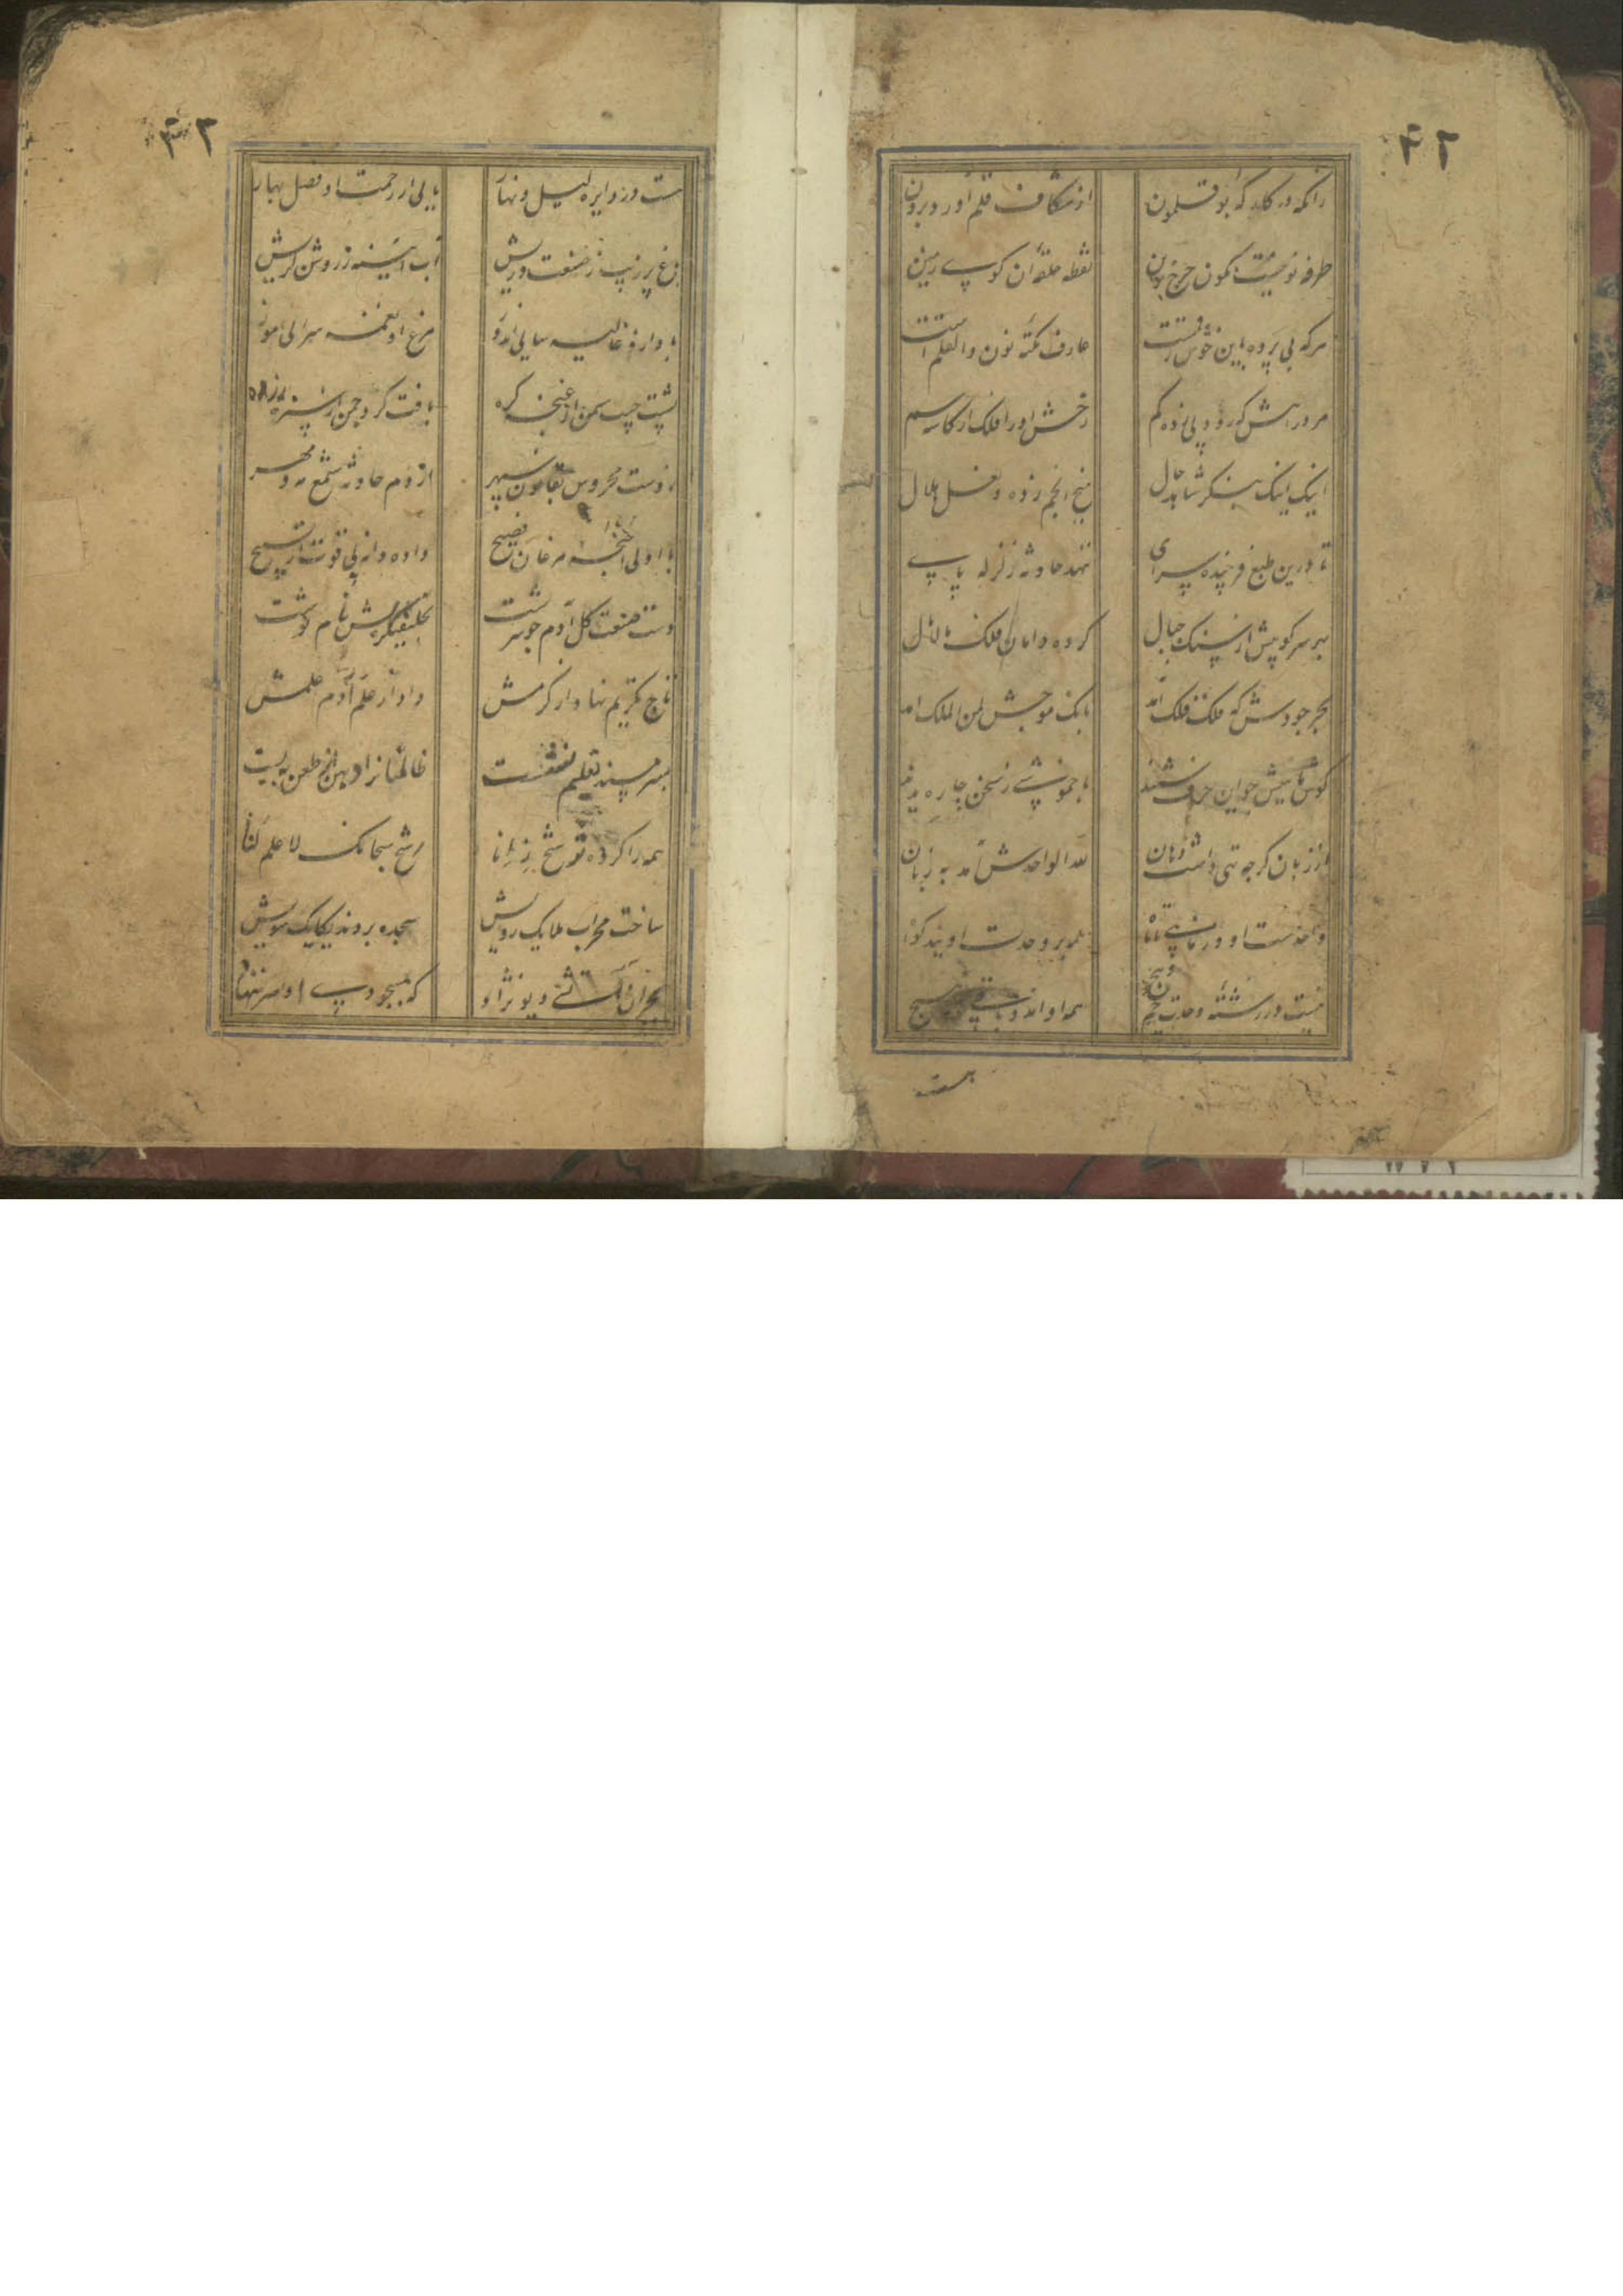 زانکه در کارکه بوقلمون از شکاف قلم آورد برون
طرفه نونیست نکون چرخ برین نقطه حلقه آن کوی زمین
هرکه پی برده باین خوش رقمست عارف نکته نون والقلم است
مرد راهش که رود پی زده کم رخش او را فلک از کاسه سم
اینک اینک بنکر شاهد حال میخ انجم زده و نعل هلال
تا درین طبع فرخنده سرای ننهد حادثه زلزله پای
بر سر کوپش از سنک جبال کرده دامان فلک مالامال
بحر جودش که فلک فلک آمد بانک موجش لمن الملک آمد
کوش ماهیش چو این حرف شنید با خموشی ز سخن چاره ندید
از زبان کرچه تهی داشت دهان لله الواحدش آمد به زبان
واحدست او و درماندکی تا همه بر وحدت او بند کوا
نیست در رشته وحدت خم و پیچ همه او اند و باقی همه هیچ
هست
۴۲
هست در دایره لیل و نهار بابی از رحمت او فصل بهار
زاغ پر زیب ز صنعت وریش آب آیینه ز روشن کریش
باد ازو غالیه سایی اندوز مرغ ازو نغمه سرایی آموز
پشت چیب سمن از غنچه کره بافت کرد چمن از سبزه زره
زدست محروس بقانون سپهر از دم حادثه شمع مه و مهر
با اولی اجنحه مرغان فصیح داده دانه پی قوت از تسبیح
دست صنعت کل آدم چو سرشت بخلیفکریش نام نوشت
تاج تکریم نهاد از کرمش داد از علم آدم علمش
بسر مسند تعلیم نشست ظالمانرا دهن از طعن ببست
همه را کرده تر شح ز زبانا رشح سبحانک لا علم لنا
ساخت محراب ملایک رویش سجده بردند یکایک سویش
بجز آن آتشی دیو نژاد که بمسجودی او سر ننهاد
۴۳